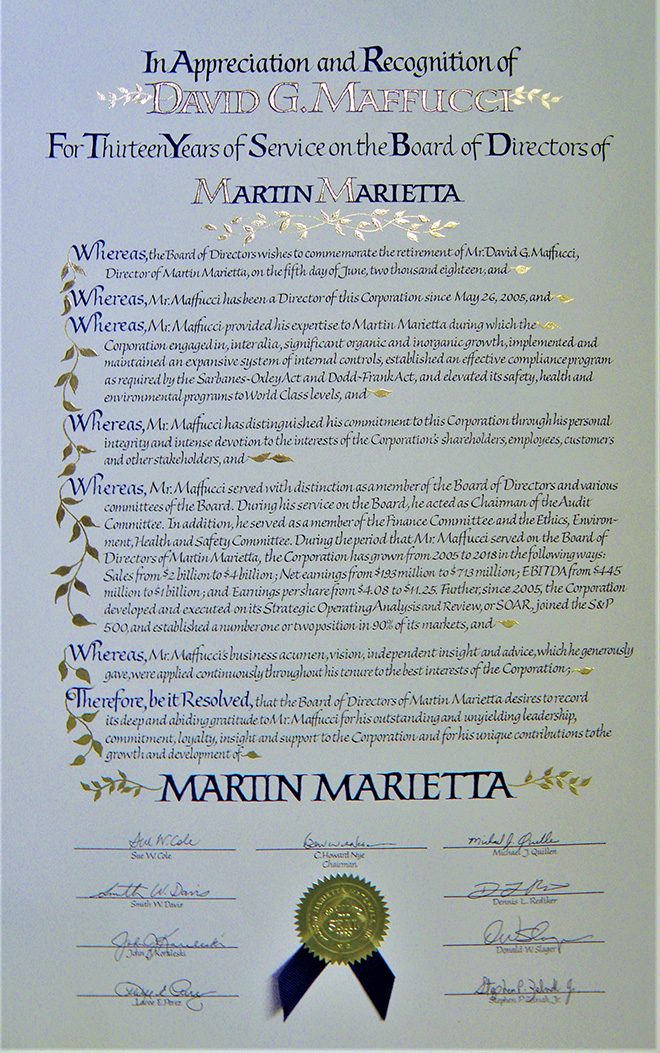 In Appreciation and Recognition of
DAVID G. MAFFUCCI
For Thirteen Years of Service on the Board of Directors of
MARTIN MARIETTA
Whereas, the Board of Directors wishes to commemorate the retirement of Mr. David G. Maffucci,
Director of Martin Marietta, on the fifth day of June, two thousand eighteen, and
Whereas, Mr. Maffucci has been a Director of this Corporation since May 26, 2005, and
Whereas, Mr. Maffucci provided his expertise to Martin Marietta during which the
Corporation engaged in, inter alia, significant organic and inorganic growth, implemented and
maintained an expansive system of internal controls, established an effective compliance program
as required by the Sarbanes-Oxley Act and Dodd-Frank Act, and elevated its safety, health and
environmental programs to World Class levels, and
Whereas, Mr. Maffucci has distinguished his commitment to this Corporation through his personal
integrity and intense devotion to the interests of the Corporation's shareholders, employees, customers
and other stakeholders, and
Whereas, Mr. Maffucci served with distinction as a member of the Board of Directors and various
committees of the Board. During his service on the Board, he acted as Chairman of the Audit
Committee. In addition, he served as a member of the Finance Committee and the Ethics, Environ-
ment, Health and Safety Committee. During the period that Mr. Maffucci served on the Board of
Directors of Martin Marietta, the Corporation has grown from 2005 to 2018 in the following ways:
Sales from $2 billion to $4 billion; Net earnings from $193 million to $713 million; EBITDA from $445
million to $1 billion; and Earnings per share from $4.08 to $11.25. Further, since 2005, the Corporation
developed and executed on its Strategic Operating Analysis and Review, or SOAR, joined the S&P
500, and established a number one or two position in 90% of its markets, and
Whereas, Mr. Maffucci's business acumen, vision, independent insight and advice, which he generously
gave, were applied continuously throughout his tenure to the best interests of the Corporation;
Therefore, be it Resolved, that the Board of Directors of Martin Marietta desires to record
its deep and abiding gratitude to Mr. Maffucci for his outstanding and unyielding leadership,
commitment, loyalty, insight and support to the Corporation and for his unique contributions to the
growth and development of
MARTIN MARIETTA
Sue W. Cole
Sue W. Cole
C. Howard Nye
Chairman
Michael J. Quillen
Michael J. Quillen
Smith W. Davis
Smith W. Davis
Dennis L. Rediker
John J. Koraleski
Donald W. Slager
Laree E. Perez
Laree E. Perez
Stephen P. Zelnak, Jr.
Stephen P. Zelnak, Jr.
SEAL